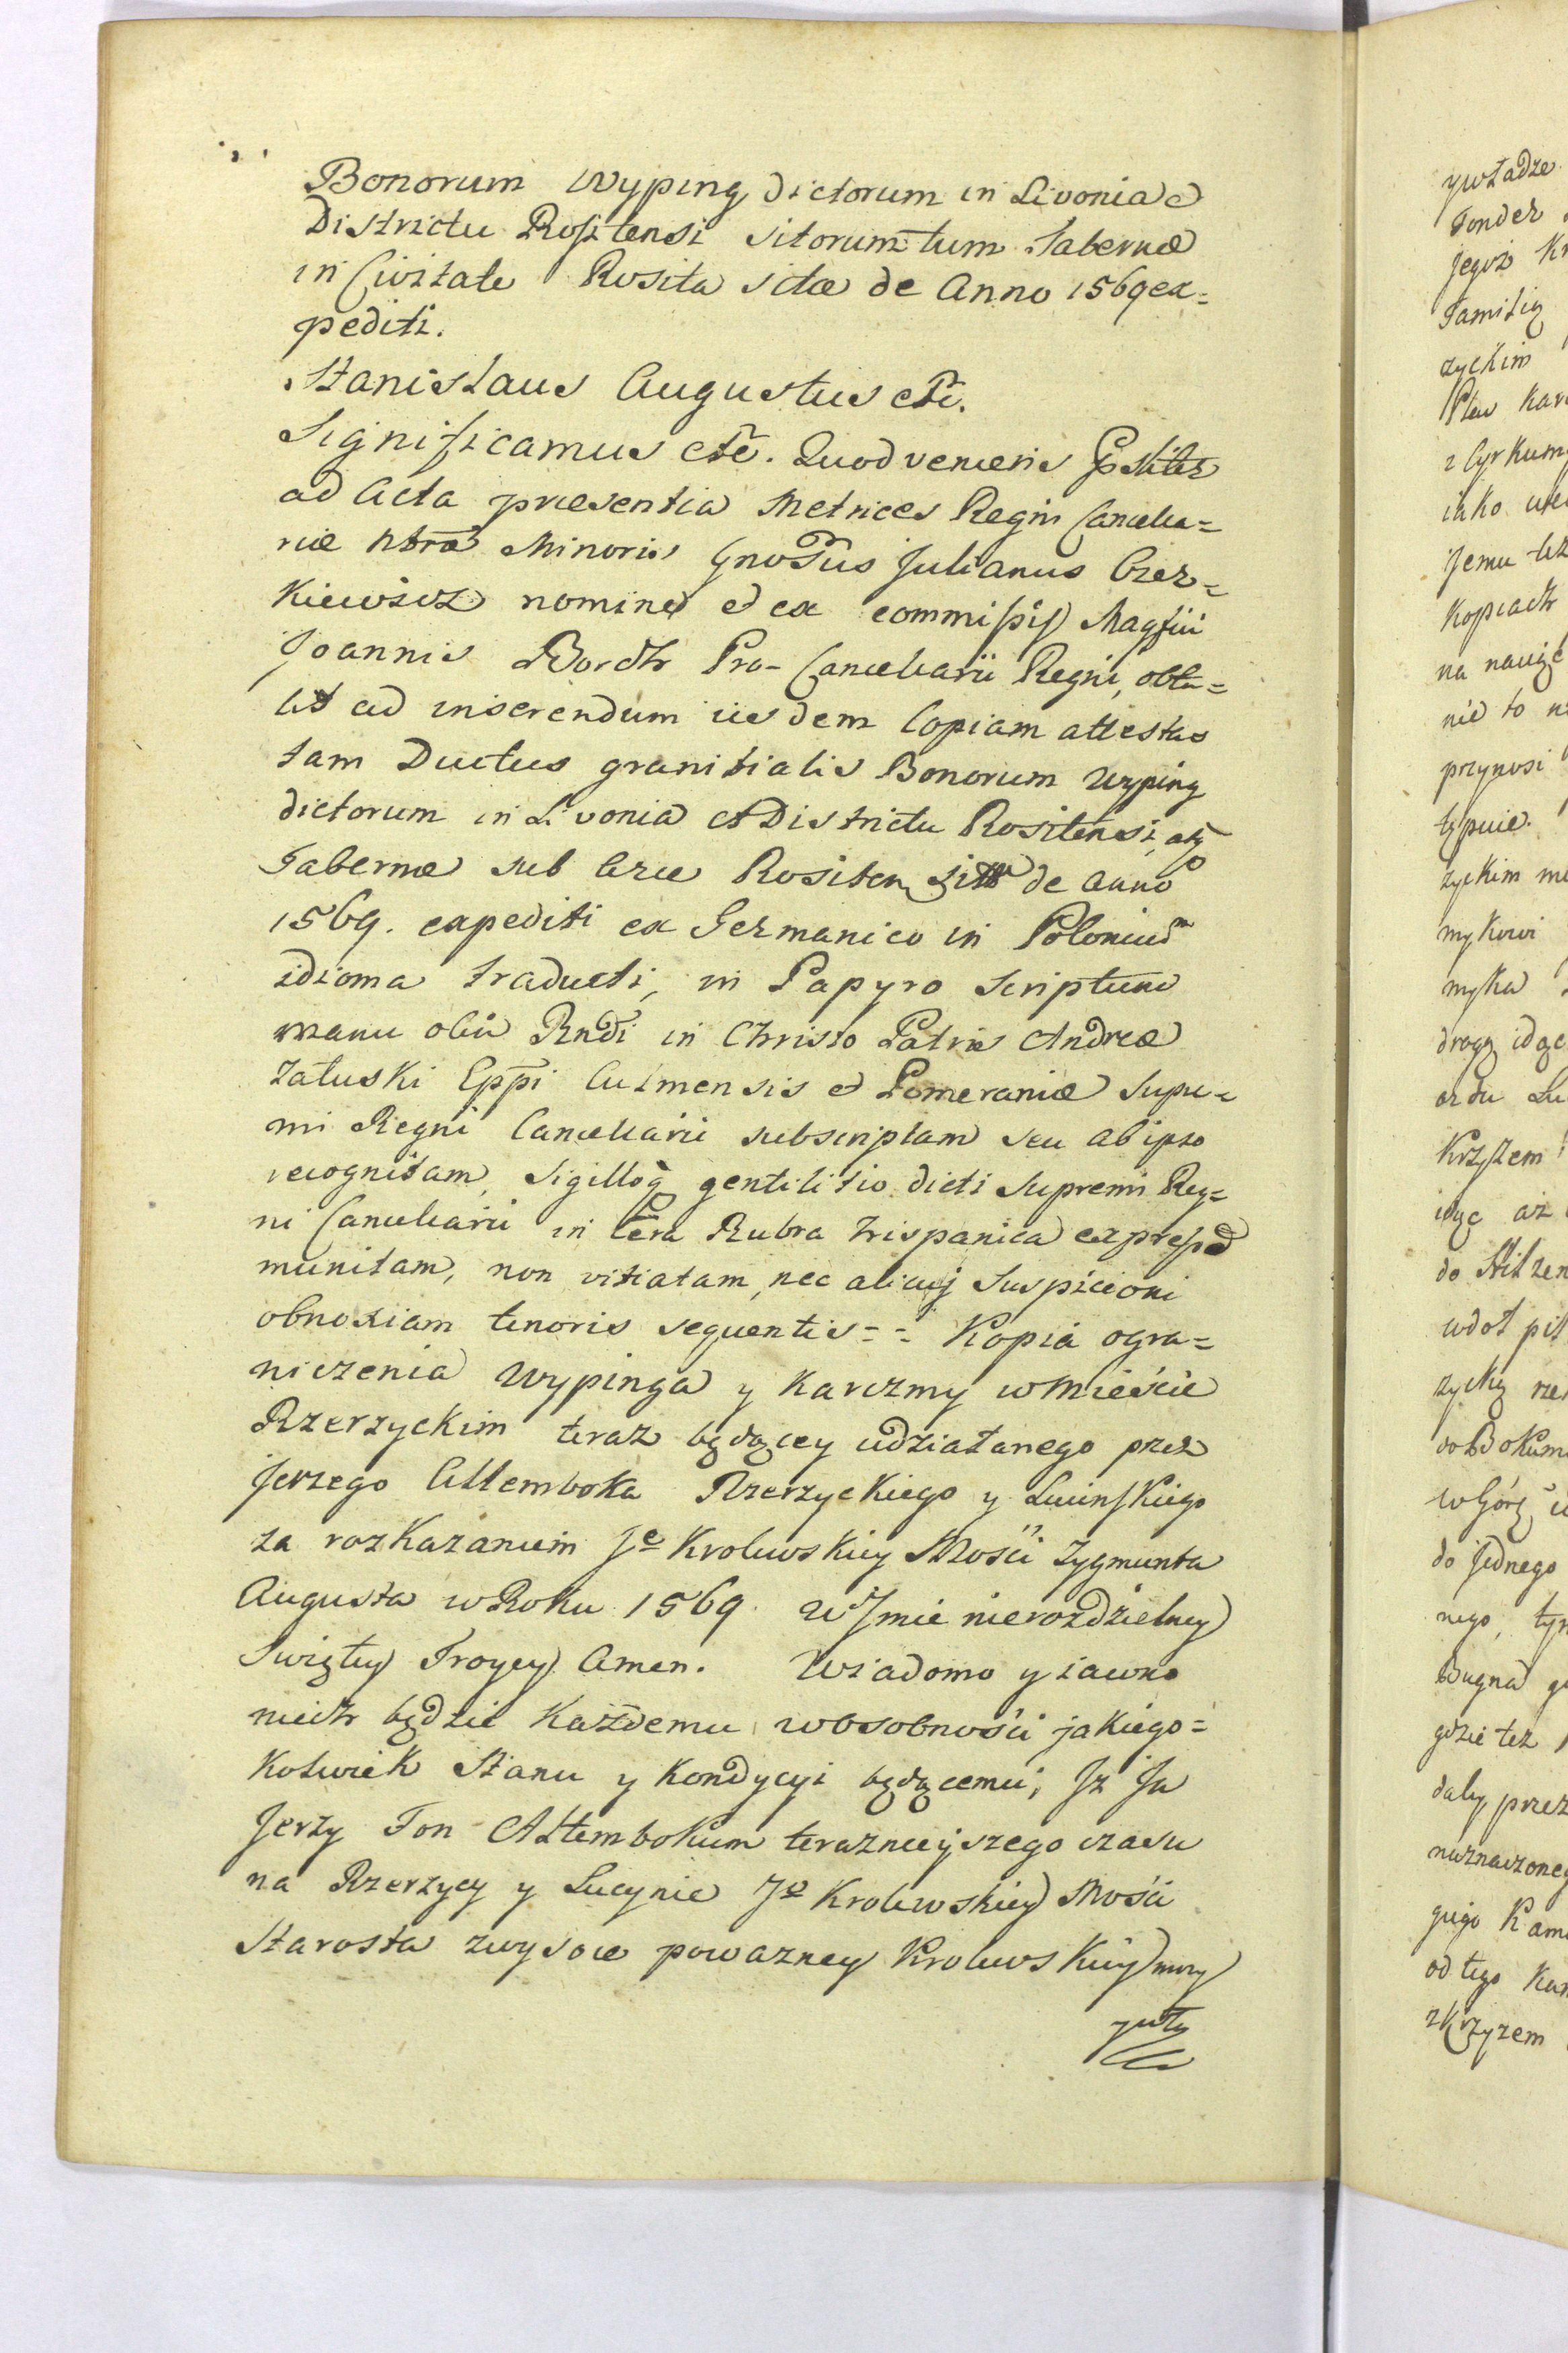 Bonorum Wyping dictorum in Livonia e
Districtu Rositensi sitorum tum Tabernæ
in Civitate Rosita sitæ de Anno 1569 ex=
pediti.
Stanislaus Augustus etc.
Significamus etc. Quod veniens Psliter
ad Acta præsentia Metrices Regni Cancella=
riæ Nræ Minoris Gnosus Julianus Czer=
kiewicz nomine et ex commissis Magfici
Joannis Borch Pro-Cancellarii Regni, obtu=
lit ad inserendum iisdem Copiam attesta
tam Ductus granitialis Bonorum Wyping
dictorum in Livonia et Districtu Rositensi, atq
Tabernæ sub Arce Rositen sittæ de Anno
1569. expediti ex Germanico in Polonicum
idioma traducti, in Papyro scriptam
manu olim Rndi in Christo Patris Andreæ
Załuski Eppi Culmensis et Pomeraniæ Supre=
mi Regni Cancellarii subscriptam seu ab ipso
recognitam, Sigilloq gentilitio dicti Supremi Reg=
ni Cancellarii in Cera Rubra hispanica expresso
munitam, non vitiatam, nec alicuj Suspicioni
obnoxiam tenoris sequentis = = Kopia ogra=
niczenia Wypinga y Karczmy w Mieście
Rzerzyckim teraz będącey udziałanego przez
Jerzego Altemboka Rzerzyckiego y Lucinskiego
za rozkazaniem Jo Krolewskiey Mości Zygmunta
Augusta w Roku 1569. W Jmie nierozdzielney
Swiętey Troycy Amen. Wiadomo y iawno
niech będzie każdemu w osobności jakiego=
kolwiek Stanu y kondycyi będącemu, Jż Ja
Jerzy Fon Altembokum teraznieyszego czasu
na Rzerzycy y Lucynie Jo Krolewskiey Mości
Starosta zwysoce powazney Krolewskiey mocy
y wła
ywładze
Fonder
jegoż Kr
Familią
zyckim
z Cyrkum
iako
Jemu też
kopiach
na
nie to
przynosi
zyckim
mykowi
myka
drogą idąc
Krzyzem
idąc aż
do
zycką
w Górę
do jednego
nego, tym
gdzie też
daley przez
naznaczoneg
od tego Kam
z Krzyzem